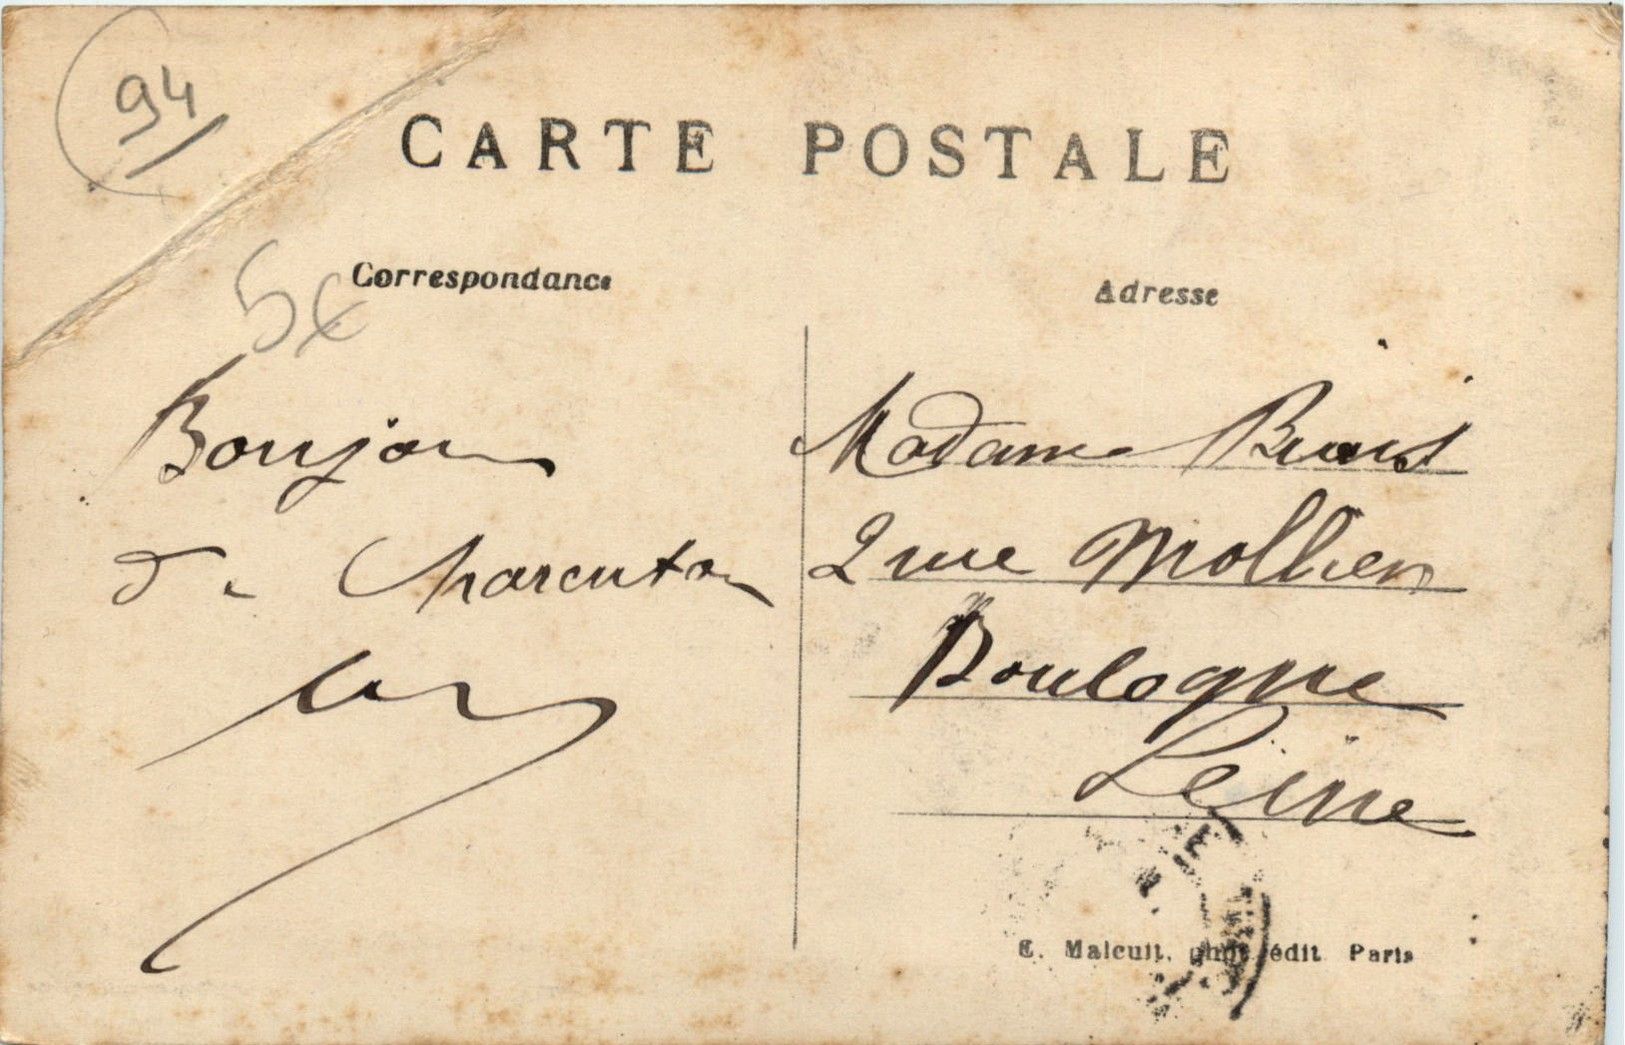 94
CARTE POSTALE
Correspondance
Adresse
5€
Bonjour
de Charenton
Madame
2 rue Mollien
Boulogne
Seine
E. Malcuit, phot. édit Paris